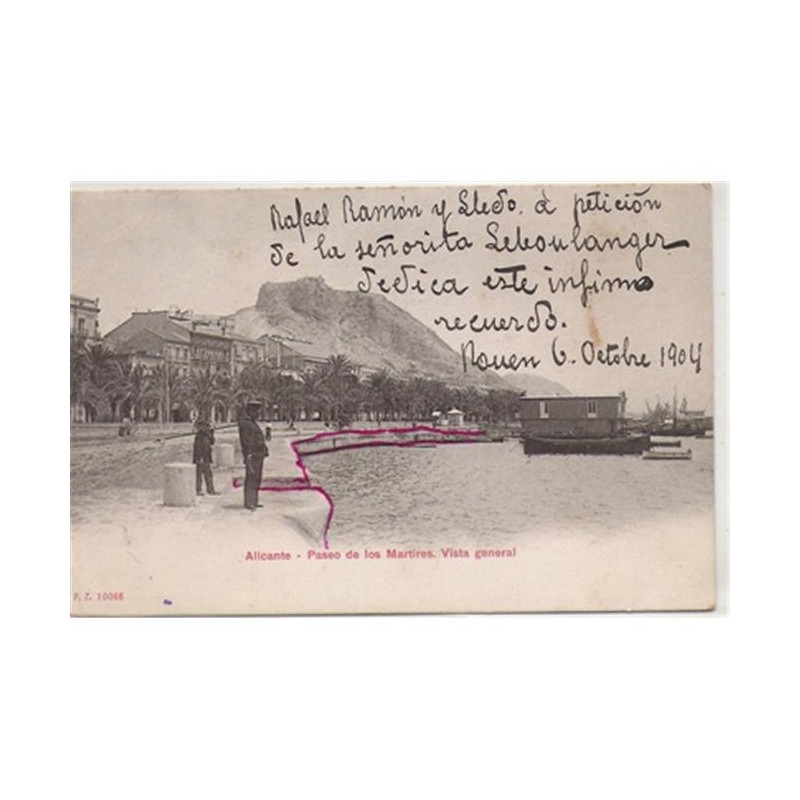 Rafael Ramón y Lledo. á petición
de la señorita Leboulanger
dedica este infimo
recuerdo.
Rouen 6. Octobre 1904
Alicante - Paseo de los Martires. Vista general
P. Z. 10086